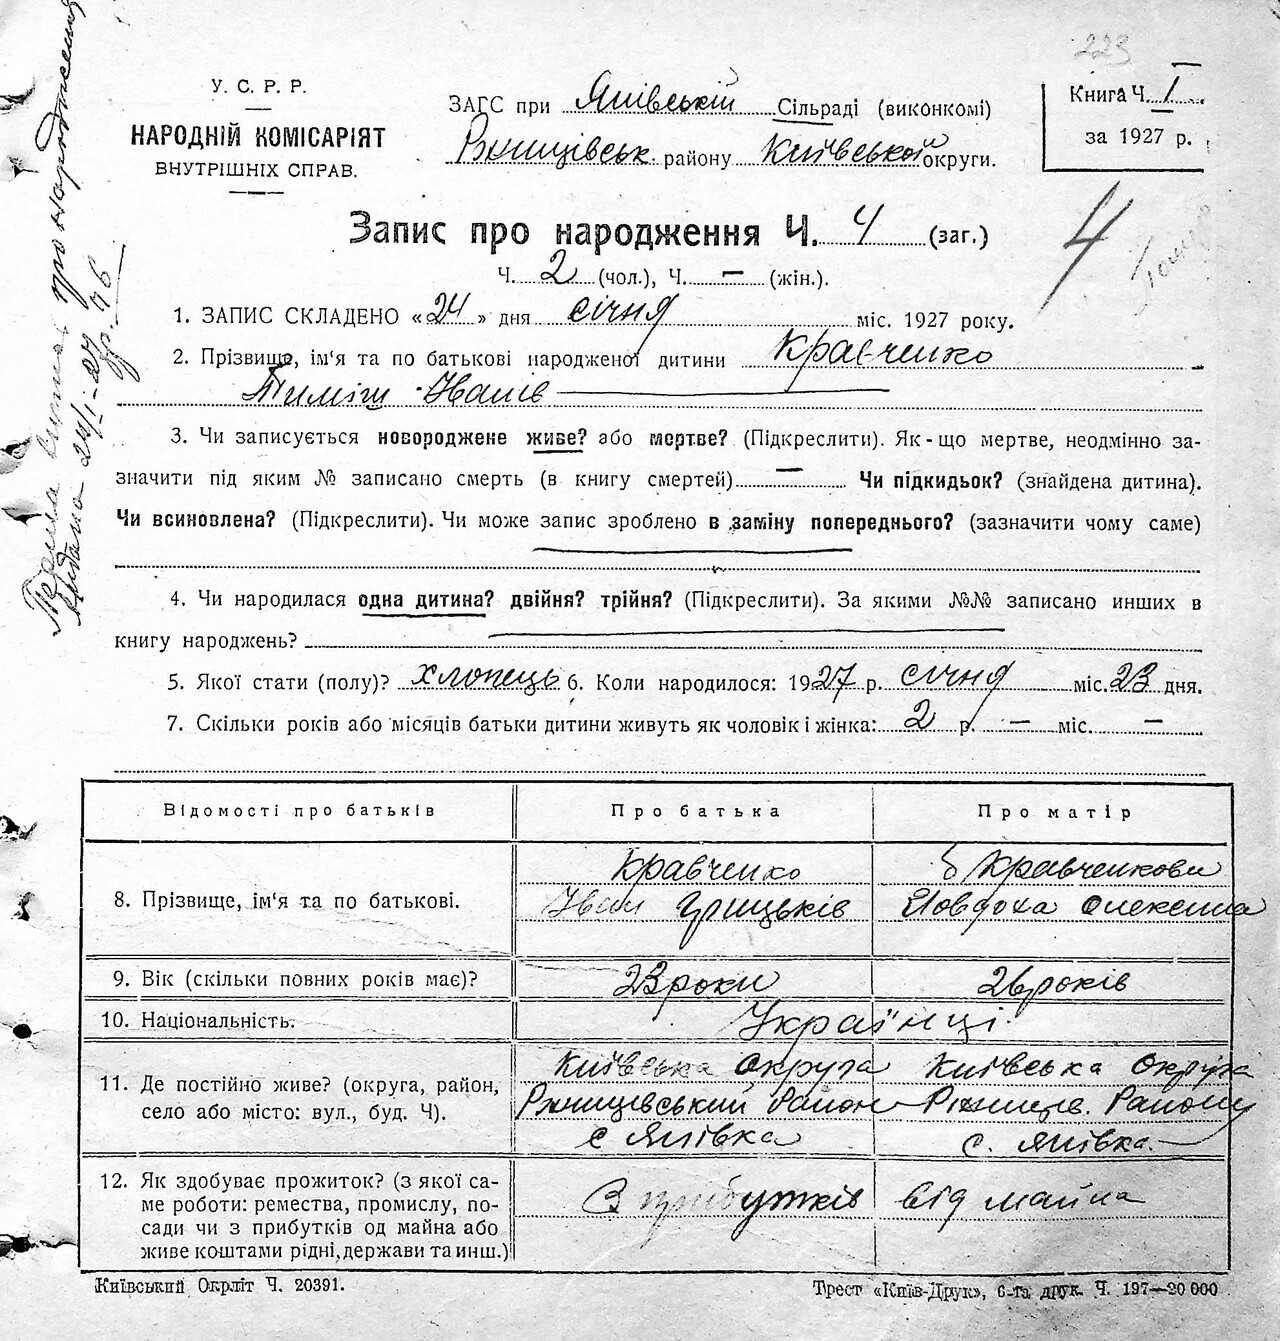 223
У. С. Р. Р.
НАРОДНІЙ КОМІСАРІЯТ
ВНУТРІШНІХ СПРАВ.
ЗАГС при Янівській Сільраді (виконкомі)
Ржищівськ. району Київської округи.
Книга Ч. I
за 1927 р.
Запис про народження Ч. 4 (заг.)
4
Ч. 2 (чол.), Ч. — (жін.).
1. ЗАПИС СКЛАДЕНО «24» дня січня міс. 1927 року.
2. Прізвище, ім'я та по батькові народженої дитини Кравченко
Тиміш Іванів
3. Чи записується новороджене живе? або мертве? (Підкреслити). Як-що мертве, неодмінно за-
значити під яким № записано смерть (в книгу смертей) — Чи підкидьок? (знайдена дитина).
Чи всиновлена? (Підкреслити). Чи може запис зроблено в заміну попереднього? (зазначити чому саме)
4. Чи народилася одна дитина? двійня? трійня? (Підкреслити). За якими №№ записано инших в
книгу народжень?
5. Якої стати (полу)? хлопець 6. Коли народилося: 1927 р. січня міс. 23 дня.
7. Скільки років або місяців батьки дитини живуть як чоловік і жінка: 2 р. — міс. —
Відомості про батьків Про батька Про матір
8. Прізвище, ім'я та по батькові.
Кравченко
Іван Грицьків
Кравченкова
Явдоха Олексіївна
9. Вік (скільки повних років має)? 23 роки 26 років
10. Національність. Українці.
11. Де постійно живе? (округа, район,
село або місто: вул., буд. Ч).
Київська Округа
Ржищівський Район
с Янівка
Київська Округа
Ржищів. Району
с. Янівка.
12. Як здобуває прожиток? (з якої са-
ме роботи: ремества, промислу, по-
сади чи з прибутків од майна або
живе коштами рідні, держави та инш.)
З прибутків від майна
Київський Окрліт Ч. 20391.
Трест «Київ-Друк», 6-та друк. Ч. 197—20 000